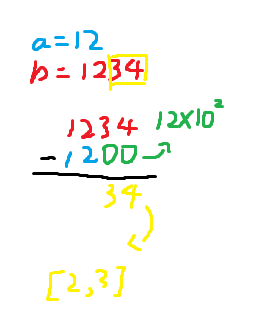 a=12
b=1234
1234 12×10²
-1200
34
[2,3]